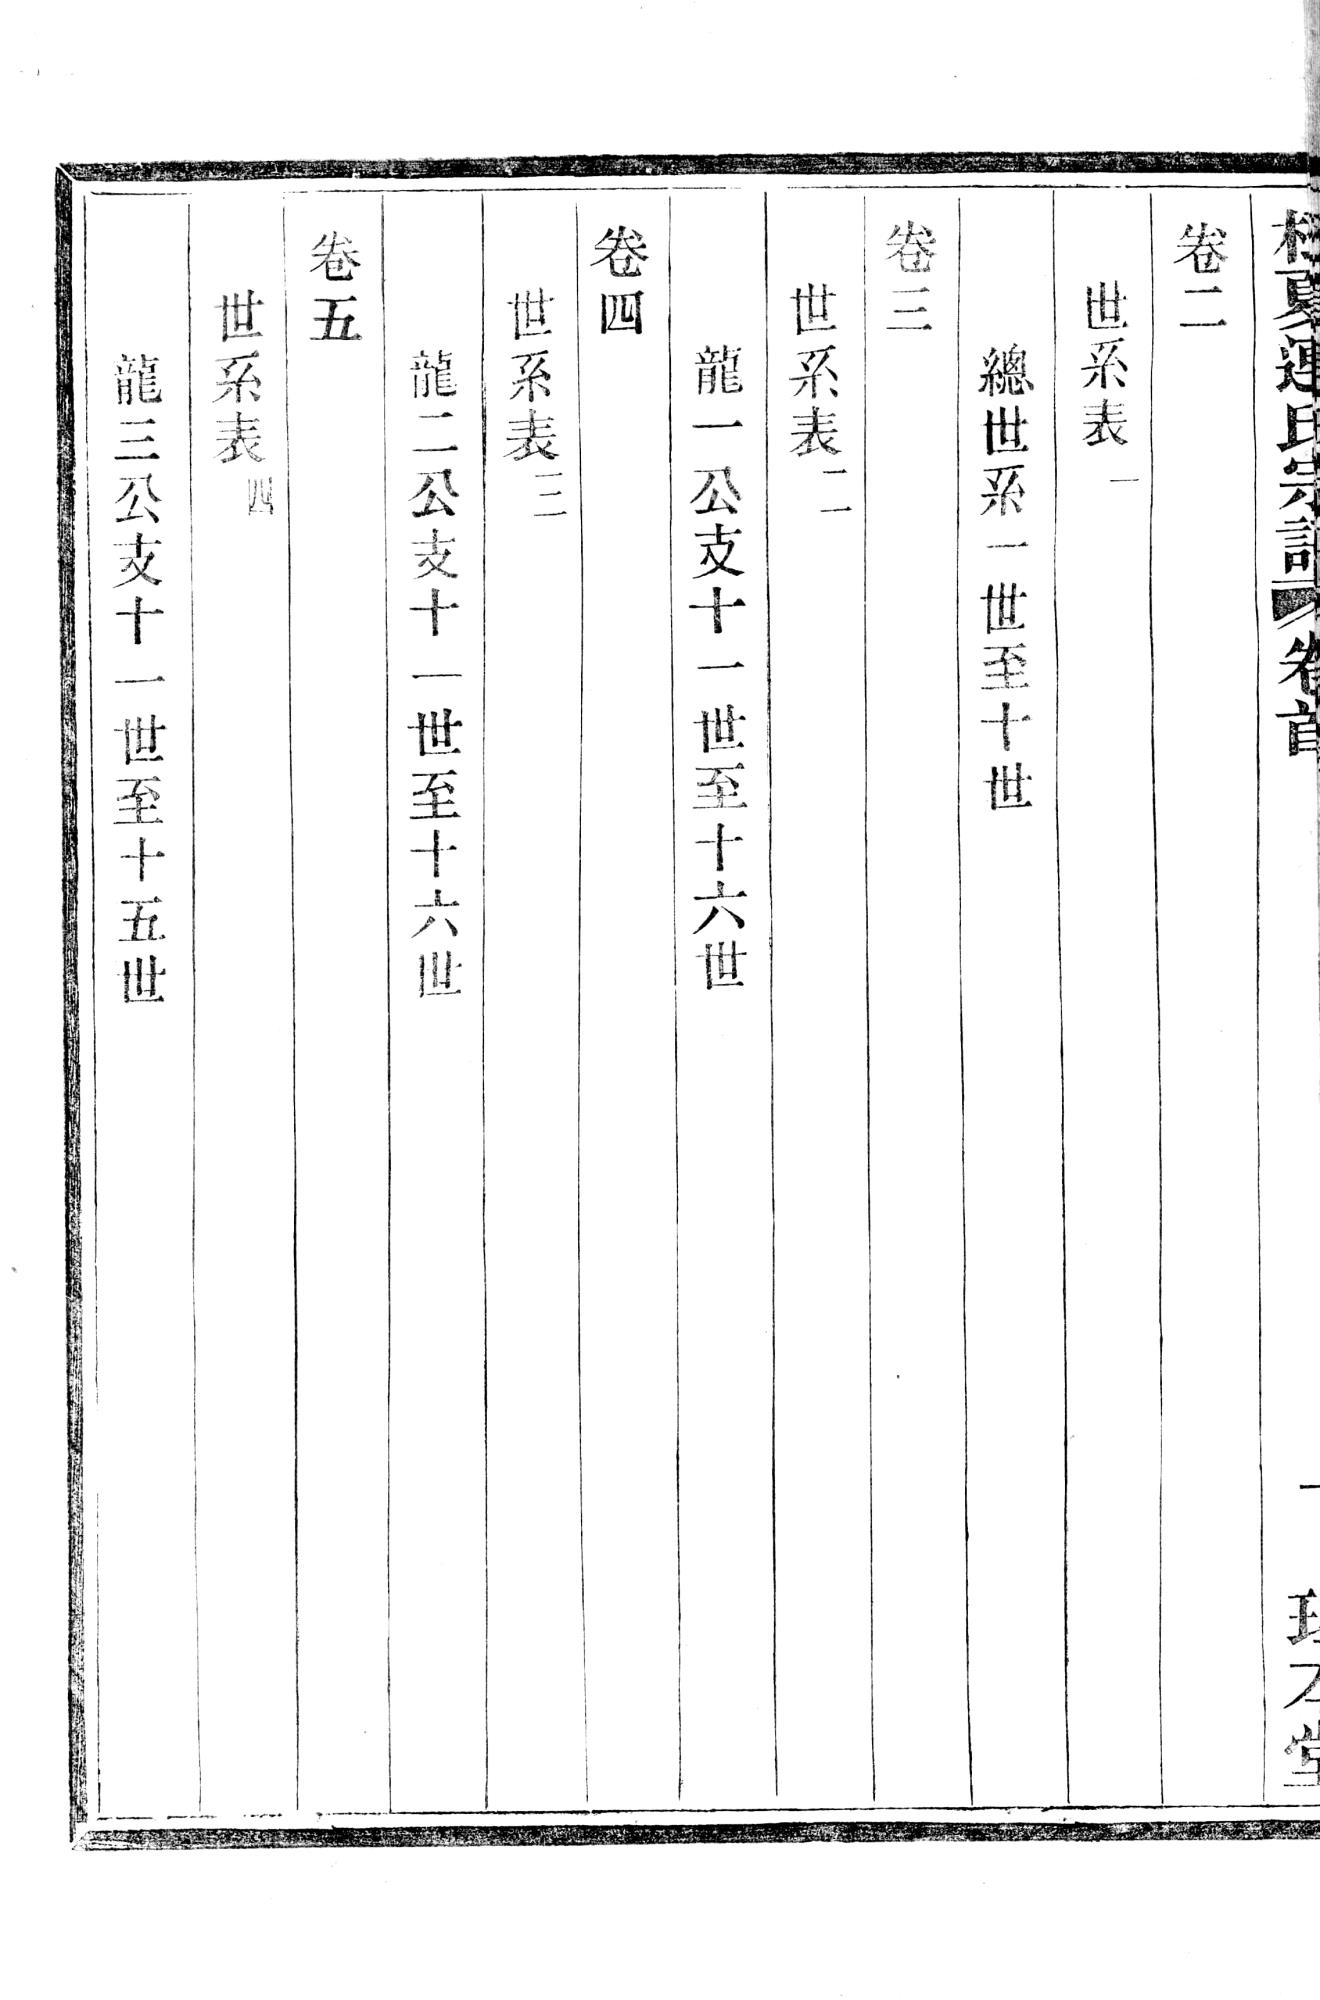 連氏宗譜 卷首
卷二
世系表一
總世系一世至十世
卷三
世系表二
龍一公支十一世至十六世
卷四
世系表三
龍二公支十一世至十六世
卷五
世系表四
龍三公支十一世至十五世